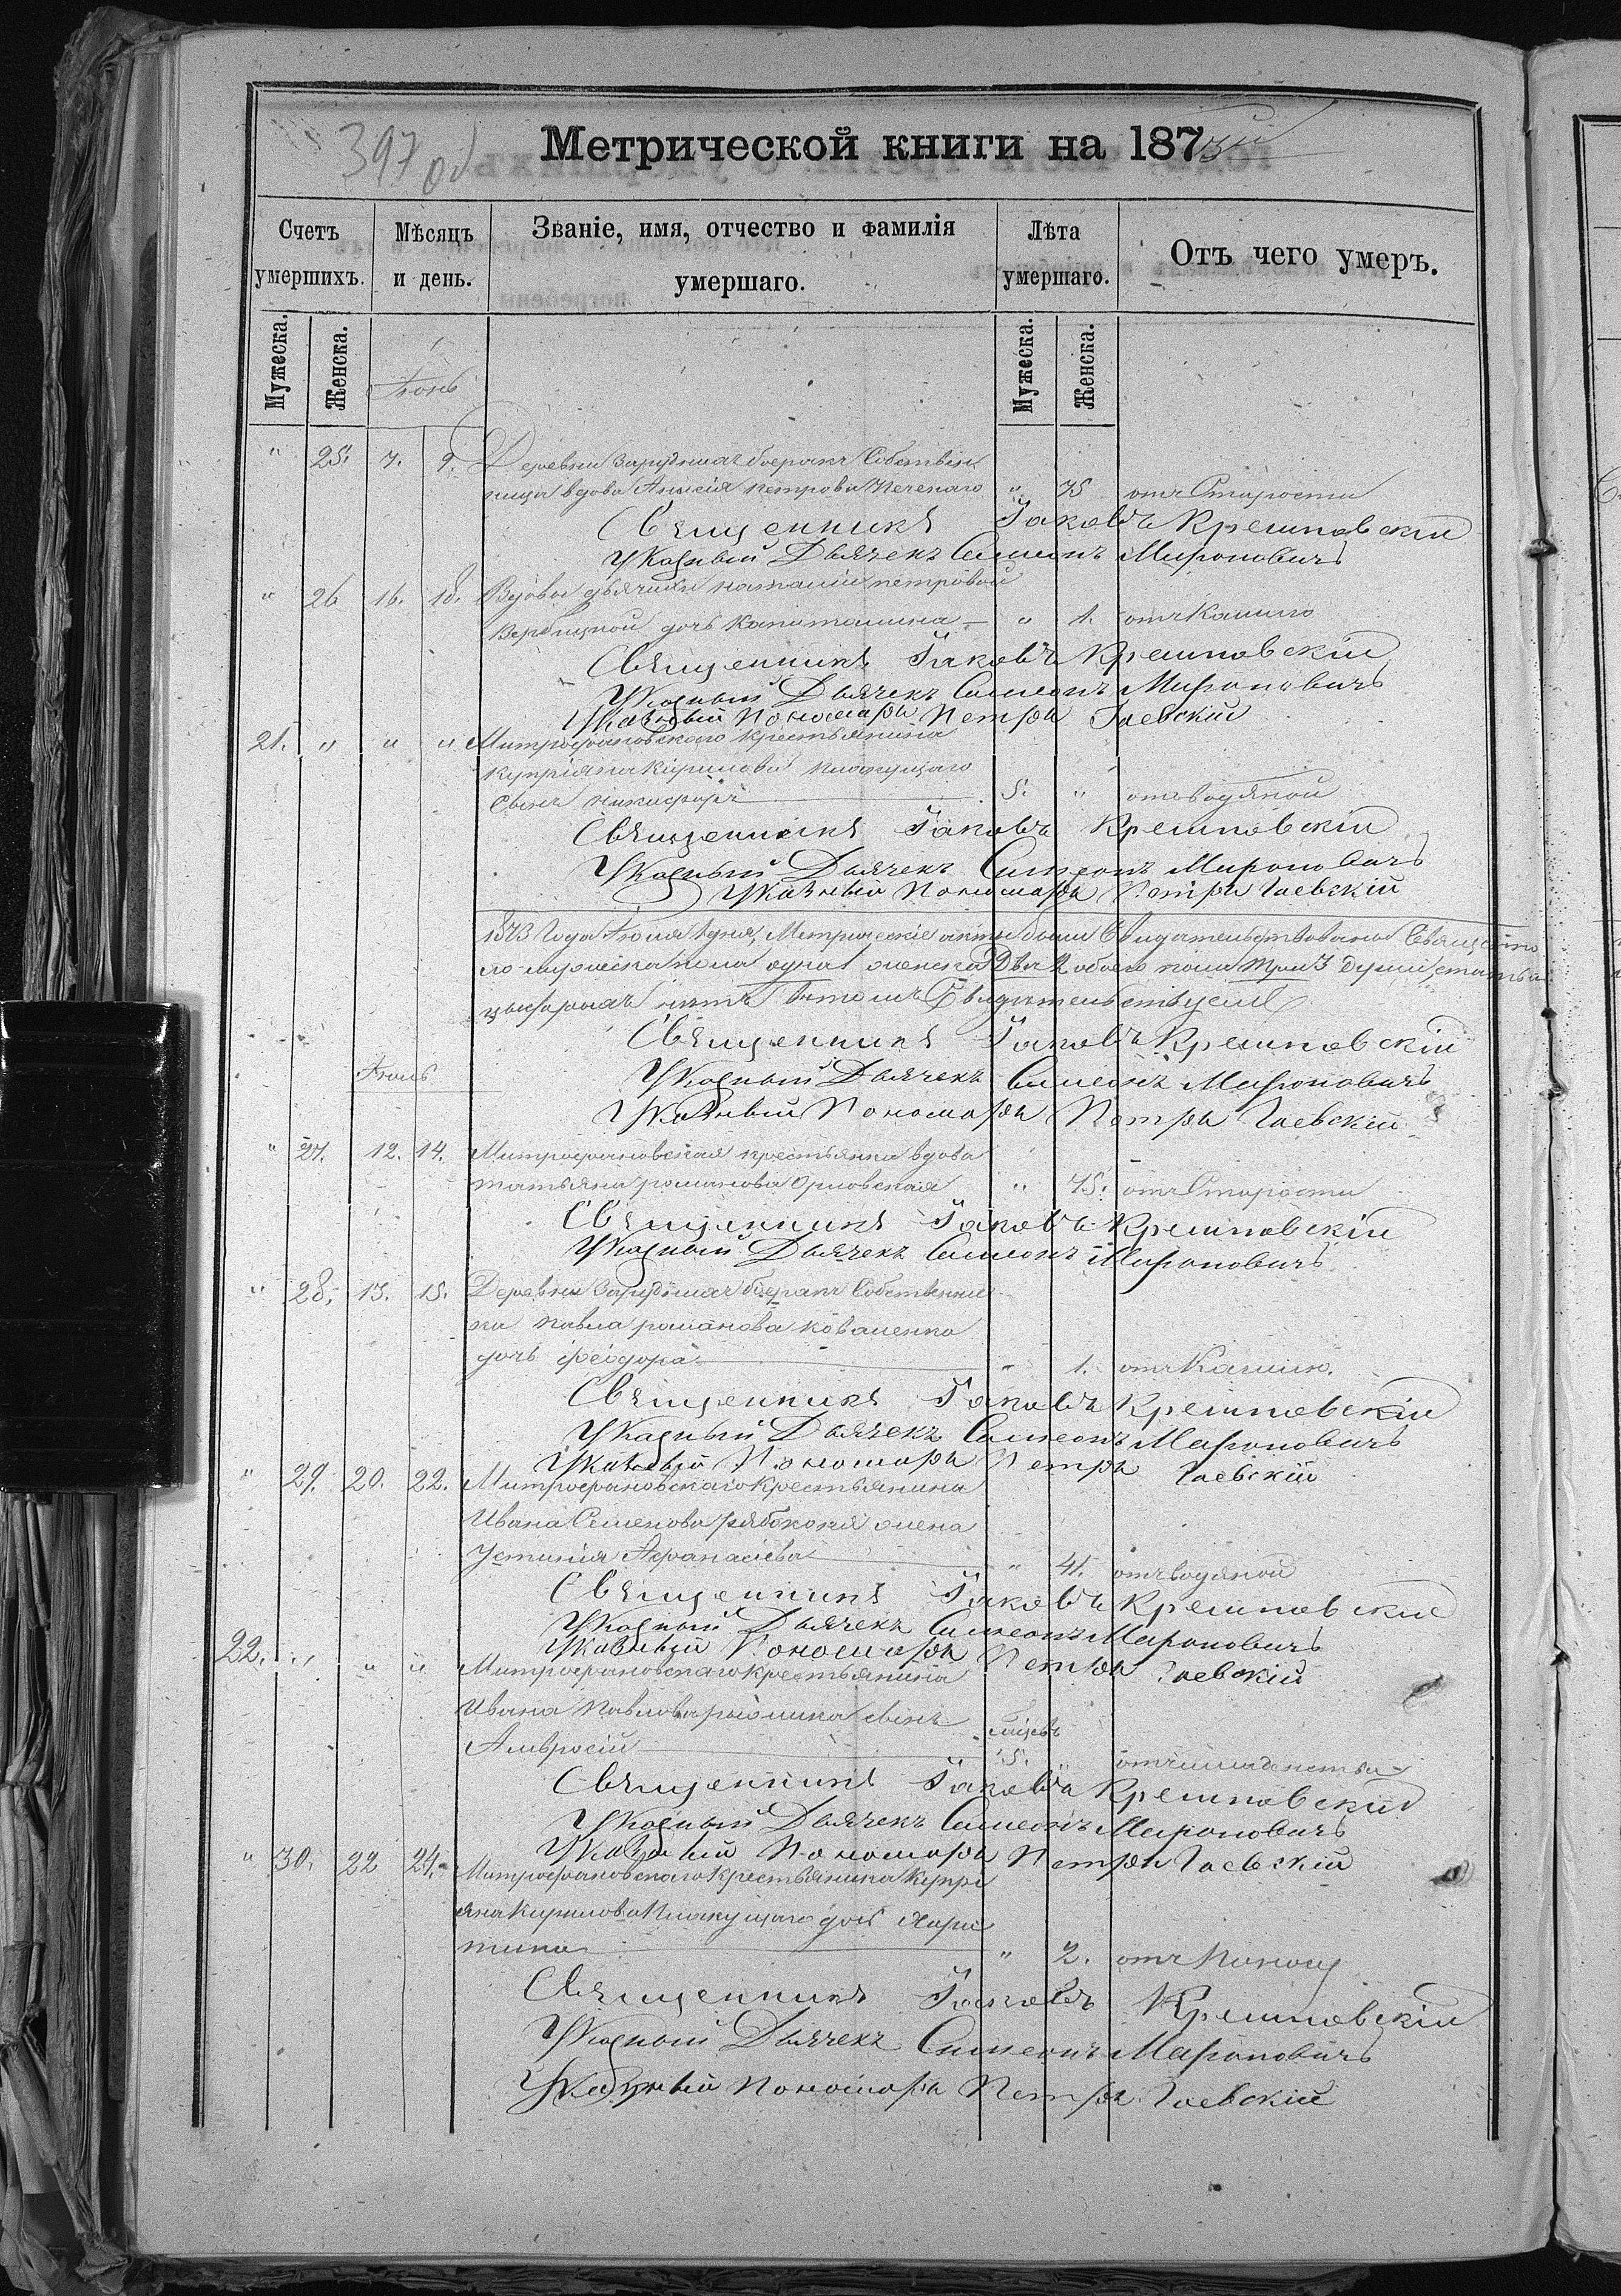 397 об
Метрической книги на 1873й
Счетъ умершихъ.
Мѣсяцъ и день.
Званіе, имя, отчество и фамилія умершаго.
Лѣта умершаго.
Отъ чего умеръ.
Мужеска.
Женска.
Мужеска.
Женска.
Іюнь
" 25. 7. 9. Деревни бояракъ Собствен
ница вдова Петрова " 75 отъ Старости
Священникъ Іаковъ Крешповскій
Указный Дьячекъ Симеонъ Мироновичъ
" 26 16. 18. Вдовы дьячихи Наталіи Петровой
Вербицкой дочь Капитолина " 1. отъ Кашлю
Священникъ Іаковъ Крешповскій
Указный Дьячекъ Симеонъ Мироновичъ
Указный Пономарь Петръ Гаевскій
21. " " " Митрофановскаго крестьянина
Купріяна Кирилова
сынъ Никифоръ 5. " отъ водяной
Священникъ Іаковъ Крешповскій
Указный Дьячекъ Симеонъ Мироновичъ
Указный Пономарь Петръ Гаевскій
1873 Года Іюля 1 дня, Метрическіе акты были Свидетельствованы
мужеска пола одна женска Два 2 обоего пола три 3 души
цыфрахъ нѣтъ въ томъ Свидетельствуемъ
Священникъ Іаковъ Крешповскій
Указный Дьячекъ Симеонъ Мироновичъ
Указный Пономарь Петръ Гаевскій
Іюль
" 27. 12. 14. Митрофановская крестьянка вдова
Татьяна Романова Орловская " 75. отъ Старости
Священникъ Іаковъ Крешповскій
Указный Дьячекъ Симеонъ Мироновичъ
" 28. 13. 15. Деревни бояракъ Собственни
ка Павла Романова Коваленка
дочь Феодора " 1. отъ Кашлю.
Священникъ Іаковъ Крешповскій
Указный Дьячекъ Симеонъ Мироновичъ
Указный Пономарь Петръ Гаевскій
" 29. 20. 22. Митрофановскаго Крестьянина
Ивана Семенова Рябоконя жена
Устинія Афанасіева " 41. отъ водяной
Священникъ Іаковъ Крешповскій
Указный Дьячекъ Симеонъ Мироновичъ
Указный Пономарь Петръ Гаевскій
22. " " " Митрофановскаго крестьянина
Ивана Павлова сынъ
Амвросій 5. " отъ младенства
Священникъ Іаковъ Крешповскій
Указный Дьячекъ Симеонъ Мироновичъ
Указный Пономарь Петръ Гаевскій
" 30. 22 24. Митрофановскаго Крестьянина Купрі
яна Кирилова дочь Хари
тина " 2. отъ Поносу
Священникъ Іаковъ Крешповскій
Указный Дьячекъ Симеонъ Мироновичъ
Указный Пономарь Петръ Гаевскій